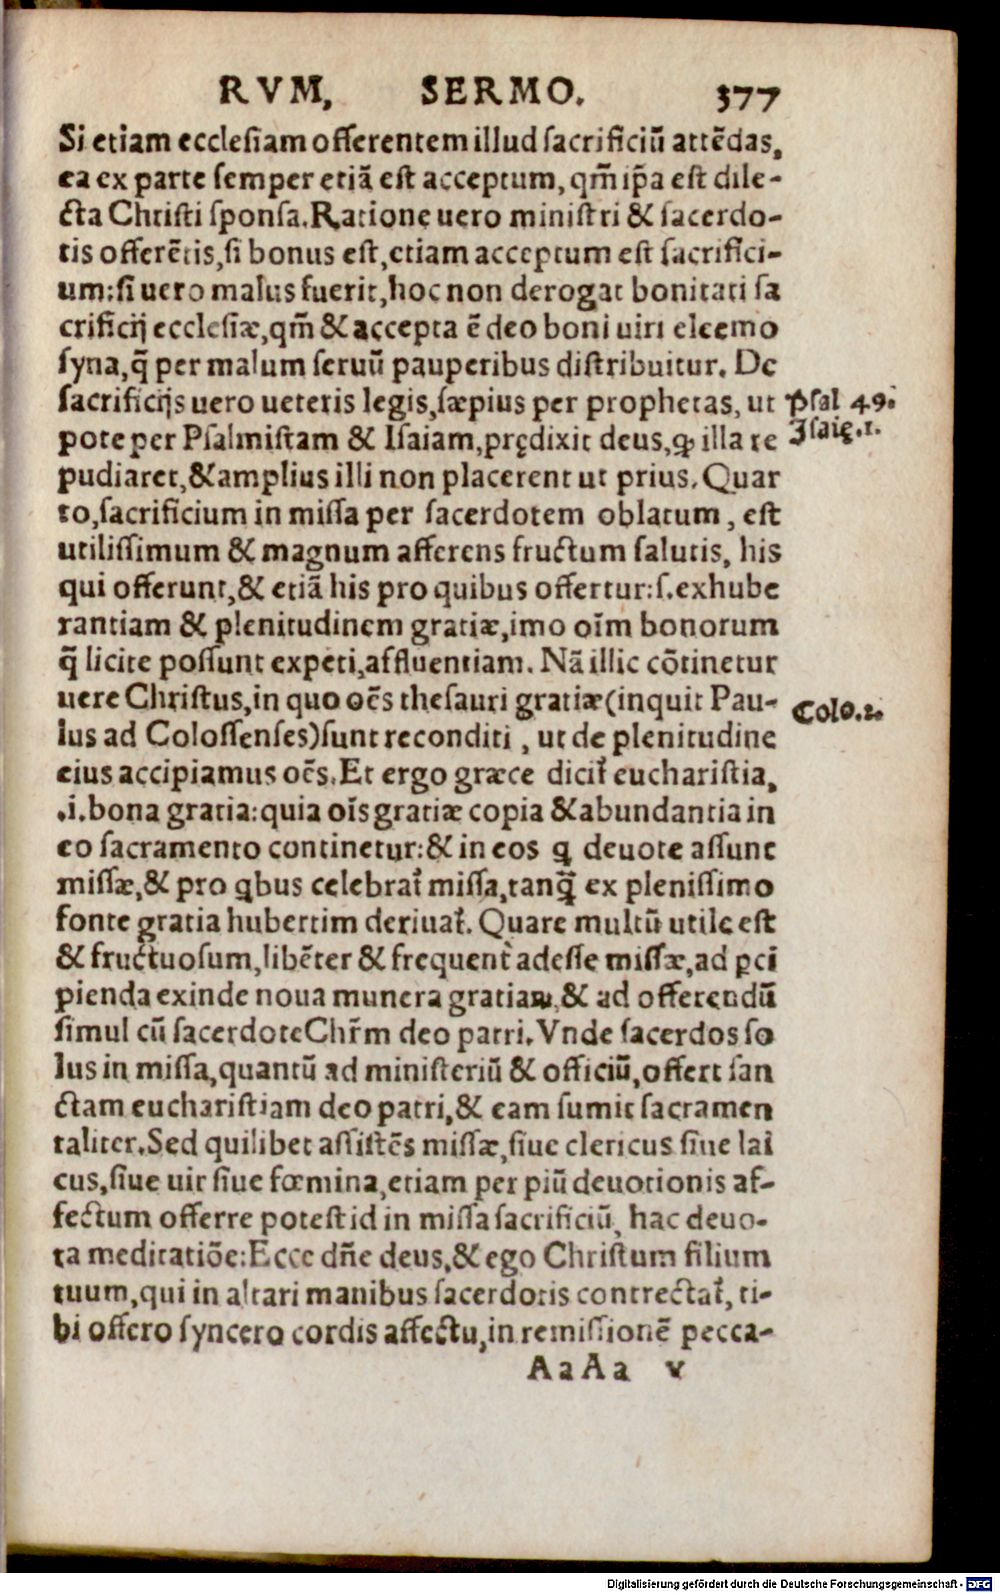 RVM, SERMO. 377
Si etiam ecclesiam offerentem illud sacrificiũ attẽdas,
ea ex parte semper etiã est acceptum, qm̃ ip̃a est dile-
cta Christi sponsa. Ratione uero ministri & sacerdo-
tis offerẽtis, si bonus est, etiam acceptum est sacrifici-
um: si uero malus fuerit, hoc non derogat bonitati sa
crificij ecclesiæ, qm̃ & accepta ẽ deo boni uiri eleemo
syna, q̃ per malum seruũ pauperibus distribuitur. De
sacrificijs uero ueteris legis, sæpius per prophetas, ut
Psal 49.
pote per Psalmistam & Isaiam, prędixit deus, ꝙ illa re
Isaię.1.
pudiaret, & amplius illi non placerent ut prius. Quar
to, sacrificium in missa per sacerdotem oblatum, est
utilissimum & magnum afferens fructum salutis, his
qui offerunt, & etiã his pro quibus offertur: s. exhube
rantiam & plenitudinem gratiæ, imo oĩm bonorum
q̃ licite possunt expeti, affluentiam. Nã illic cõtinetur
uere Christus, in quo oẽs thesauri gratiæ (inquit Pau-
Colo.2.
lus ad Colossenses) sunt reconditi, ut de plenitudine
eius accipiamus oẽs. Et ergo græce dicit᷑ eucharistia,
.i. bona gratia: quia oĩs gratiæ copia & abundantia in
eo sacramento continetur: & in eos ꝗ deuote assunt
missæ, & pro ꝗbus celebrat᷑ missa, tanꝗ̃ ex plenissimo
fonte gratia hubertim deriuat᷑. Quare multũ utile est
& fructuosum, libẽter & frequent᷑ adesse missæ, ad ꝑci
pienda exinde noua munera gratiarum, & ad offerendũ
simul cũ sacerdote Chr̃m deo patri. Vnde sacerdos so
lus in missa, quantũ ad ministeriũ & officiũ, offert san
ctam eucharistiam deo patri, & eam sumit sacramen
taliter. Sed quilibet assistẽs missæ, siue clericus siue lai
cus, siue uir siue fœmina, etiam per piũ deuotionis af-
fectum offerre potest id in missa sacrificiũ, hac deuo-
ta meditatiõe: Ecce dñe deus, & ego Christum filium
tuum, qui in altari manibus sacerdotis contrectat᷑, ti-
bi offero syncero cordis affectu, in remissionẽ pecca-
AaAa v
Digitalisierung gefördert durch die Deutsche Forschungsgemeinschaft - DFG